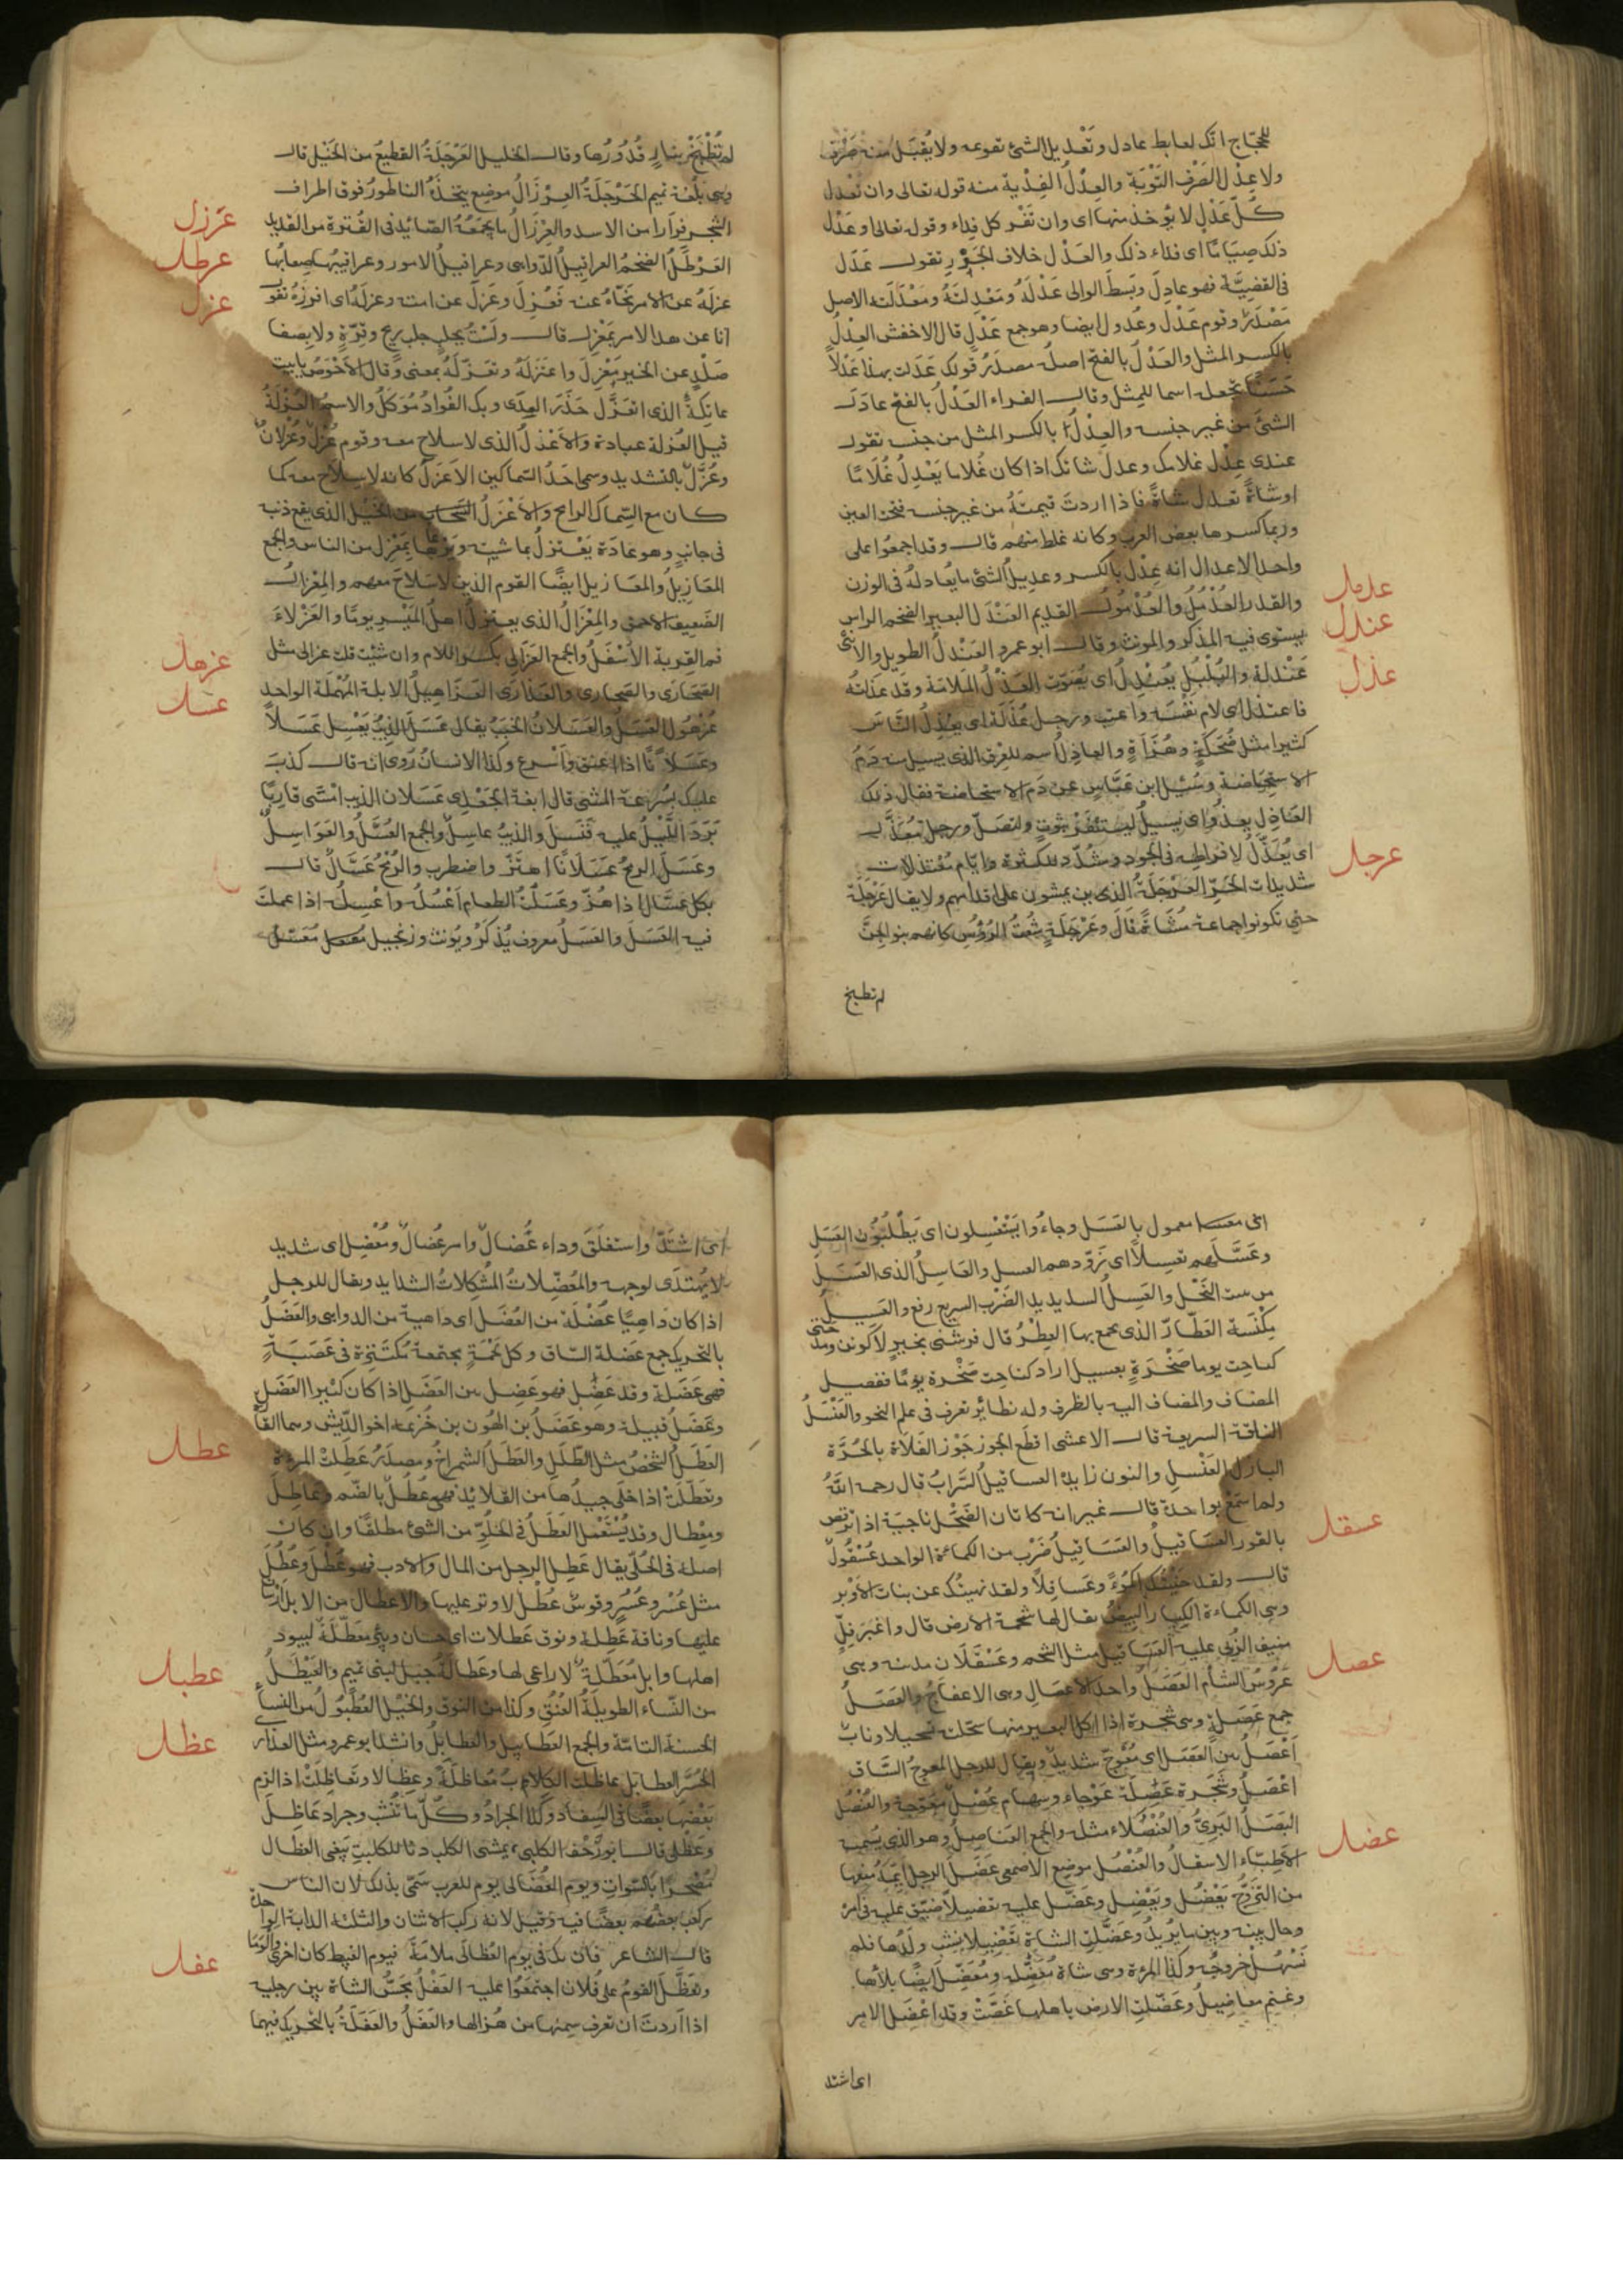 للحجّاج انّك لعابط عادل وتَعْديل الشئ تقويمه ولا يُقبَل منه صَرْف
ولا عدْل الصَرْف التَوْبَة والعدْلُ الفِدْية منه قوله تعالى وان تعْدل
كُلّ عَدْلٍ لا يؤخذ منها اى وان تَفْد كل فِداء وقوله تعالى او عَدْل
ذلك صِيَامًا اى فداء ذلك والعَدْل خلاف الجَوْرِ تقول عَدَل
فى القضِيَّة فهو عادِل وبَسَطَ الوالى عَدْلَهُ ومَعْدِلتَهُ ومَعْدَلَته الاصل
مَصْدَرٌ وقوم عَدْل وعُدول ايضا وهو جمع عَدْلٍ قال الاخفش العِدْلُ
بالكسر المثل والعَدْلُ بالفتح اصله مصدَرُ قولك عَدَلت بهذا عَدْلاً
حَسَنًا تجعله اسما للمِثل وقال الفراء العَدْلُ بالفتح عادَل
الشئَ من غير جنسه والعِدْلُ بالكسر المثل من جنسه تقول
عندى عِدْل غلامك وعدل شاتك اذا كان غُلاما يَعْدِلُ غُلَامًا
اوشاةً تعدل شاةً فاذا اردتَ قيمتَهُ من غير جنسه فتحت العين
وربما كسرها بعض العرب وكانه غلط منهم قال وقد اجمعُوا على
واحد الاعدال انه عِدْل بالكسر وعدِيلُ الشئ ما يُعادلهُ فى الوزن
علمل والقدر العُدْمُلُ والعُدْمُولُ القديم العَنْدَل البعير الضخم الراس
عندل يستوى فيه المذكر والمونث وقال ابو عمرو العَنْدلُ الطويل والانثى
عذل عَنْدلة والبُلْبُل يُعَنْدِلُ اى يُصَوّت العَذْلُ المَلامَة وقد عَذَلتُه
فاعتذل اى لام نفْسَه واعتب ورجل عُذَلَة اى يعْذِلُ النَّاسَ
كثيرا مثل ضُحَكةٍ وهُزَأةٍ والعاذِلُ اسم للعِرق الذى يسيل منه دَمُ
الاستِحَاضة وسُئِل ابن عَبَّاس عن دَم الاستحاضة فقال ذلك
العاذِل يغذُو اى يَسِيلُ لتستَثْفِرْ بثوبٍ ولتصَلّ ورجل مُعَذَّل
عرجل اى يُعَذَّلُ لافراطه فى الجود وشُدّد للكثرة وايّام مُعْتذلات
شديدات الحَرّ العَرْجَلَةُ الذين يمشون على اقدامهم ولا يقال عَرْجَلَة
حتى تكونوا جماعة مُشَاةً قَالَ وعَرْجَلَةٍ شُعْثِ الرُؤُس كانهم بنو الجِنّ
لم تطبخ
لم تُطْبَخ بنارٍ قُدُورُها وقال الخليل العَرْجَلَةُ القطيعُ من الخَيْل قال
وهى بلُغة تميم الحَرْجَلَةُ العِرْزَالُ موضع يتخذُهُ الناطورُ فوق اطراف
عَرزل الشجر فِوارا من الاسد والعِرْزَالُ ما يَجمَعُهُ الصّائد فى القُترة من القديد
عرطل العَرْطَلُ الضخمُ العراقيلُ الدّواهى وعراقيلُ الامور وعراقيبُها صعابُها
عزل عزلَهُ عن الامر نحّاهُ عنه فَعُزِلَ وعَزَلَ عن امته وعزلَهُ اى افرزهُ تقول
انا عن هذا الامر بمَعْزِل قال ولَسْتُ بجِلبٍ جلبِ رِيح وقِرّةٍ ولا بصَفا
صَلْدٍ عن الخير مَعْزِلَ واعتزَلهُ وتعَزّلَهُ بمعنى وقال الاحْوَصُ يابيت
عاتِكةَ الذى اتعَزَّلُ حَذَرَ العِدَى وبك الفُوادُ مُوَكّلُ والاسمُ العُزْلَةُ
قيل العُزلة عبادة والاعْزلُ الذى لاسلاح معه وقوم عُزْلٌ وعُزْلانٌ
وعُزَّلٌ بالتشديد وسمى احَدُ السّماكين الاعزَلُ كانه لاسلاح معه كما
كان مع السّماك الرامح والاعْزَلُ السَّحاب من الخَيْل الذى يقع ذنبه
فى جانبٍ وهو عادَة يَعْتزلُ بما شيته ويَرْعَاها بمَعْزِل من الناس والجمع
المَعَازِيلُ والمعَازيل ايضًا القوم الذين لاسلاحَ معهم والمِعْزالُ
الضَعيف الاحمق والمِعْزالُ الذى يعتزِلُ اهلَ المَيْسِر يومًا والعَزْلَاءُ
عزهل فم القربة الاسْفَلُ والجمع العَزَالى بكسر اللام وان شئت قلت عزالى مثل
عسل الصَحَارَى والصحارى والعَذَارَى العَزَاهيلُ الابلة المُهْمَلَة الواحد
عُزْهُول العَسَلُ والعَسَلانُ الخبَبُ يقال عَسَلَ الذِيبُ يَعْسِل عَسَلاً
وعَسَلاً نًا اذا اعنق وأسرع وكذا الانسانُ رُوى انه قال كذبَ
عليك بسُرعة المشى قال ابغة الجَعْدى عَسَلان الذيب امْسَى قاربًا
بَرَدَ اللَّيْلُ عليه فَنَسَلَ والذيبُ عاسِلٌ والجمع العُسَّلُ والعَوَاسِلُ
وعَسَلَ الرمحُ عَسَلَانًا اهتَزّ واضطرب والرُمْحُ عَسَّالٌ قال
بكل عَسَّالٍ اذا هُزّ وعَسَلْتُ الطعام أَعْسُلُه واعْسِلُه اذا عملتَ
فيه العَسَلَ والعَسَلُ معروف يُذكرُ ويُونث وزنجبيل مُعسّل
اى معسل معمول بالعَسَل وجاءُوا يَسْتَعْسِلون اى يَطْلُبُون العَسَل
وعَسَّلهم تعسيلاً اى زَوّدهم العسل والعَاسِلُ الذى العَسَل
من بيت النَحْل والعَسِلُ الشديد الضَرْب السريع رفع والعَسِيلُ
مِكْنَسَة العَطّار الذى يجمع بها العِطْرُ قال فرشنى بخيرٍ لا كونن ومدحتى
كناحِت يوما صَخْرَةٍ بعسيل اراد كناحِتِ صَخْرة يومًا ففصل
المضاف والمضاف اليه بالظرف وله نظائر تعرف فى علم النحو والعَنْسَلُ
الناقة السريعة قال الاعشى اقطَع الجوز جَوْزَ الفَلَاة بالحُرَّة
البازل العَنْسَلِ والنون زايدة العساقيلُ السَّرابُ قال رحمه اللهُ
عسقل ولم أسْمَعْ بواحده قال غير انه كاتان الضَحْل ناجية اذا ترقص
بالقور العَساقيلُ والعَسَاقيلُ ضَرْب من الكماءة الواحد عُسْقُولٌ
قال ولقد جَنيْتُك اكمُؤً وعَسَاقِلًا ولقد نهيتُك عن بنات الاوْبر
وهى الكماءة الكِبَارُ البيضُ يقال لها شحمة الارض قال واغبَر فِلٍّ
عصل منيف الرُبى عليه العَسَاقيل مثل الشحم وعَسْقَلَان مدينة وهى
عَرُوسُ الشأم العَصَلُ واحد الاعصَالِ وهى الاعفاجُ والعَصَلُ
جمع عَصَلةٍ وهى شجرة اذا اكل البعير منها سَلحته تسحيلا وناب
أعْصَلُ بيّن العَصَل اى مُعْوَجّ شديدٌ ويقال للرجل المعوجّ السَّاق
اعْصَلُ وشجَرة عَصِلَة عَوْجاء وسِهام عُصْلٌ معوّجة والعُنْصُلُ
عضل البَصَلُ البَرِيُّ والعُنْصُلاء مثله والجمع العَناصِلُ وهو الذى يُسميه
الاطِبّاء الاسقالُ والعُنْصُل موضع الاصمعى عَضَلَ الرجل ايّمَهُ منعها
من التزَوُّج يَعْضُلُ ويَعْضِل وعَضّل عليه تعضيلاً ضيّق عَليه فى امْر
وحال بينه وبين ما يُرِيدُ وعَضَّلتِ الشاة تَعْضِيلا نشب ولَدُها فلم
تَسْهُل خروجُه وكذا المرْة وهى شاة مُعَضِّلة ومُعَضِّل ايضًا بلا ها
وغنم معاضِيلُ وعَضّلتِ الارض باهلها غَصَّتْ وقد اعْضَل الامر
اى اشتد
اى اشتَدّ واستغلَقَ وداء عُضالٌ وامر عُضالٌ ومُعْضِل اى شديد
لا يُهتدَى لوجهه والمُعَضّلاتُ المُشكِلاتُ الشدايد ويقال للرجل
اذا كان دَاهِيًا عُضْلَة من العُضَل اى داهية من الدواهى والعَضَلُ
بالتحريك جمع عَضلة السّاق وكل لَحْمَةٍ مجتمعة مُكتَنِزة فى عَصَبَةٍ
فهى عَضَلة وقد عَضِل فهو عَضِل بين العَضَل اذا كان كثير العَضَل
وعَضَلُ قبيلة وهو عَضَلُ بن الهُون بن خُزيمة اخو الدِّيش وهما القارة
عطل العَطَلُ الشخصُ مثل الطَلَل والعَطَلُ الشمراخُ ومصدَرُ عَطِلتْ المرءة
وتعَطّلَتْ اذا خلى جيدُها من القلايُد فهى عُطُل بالضّم وعَاطِل
ومِعْطال وقد يُسْتَعْمَل العَطَلُ فى الخلوّ من الشئ مطلقًا وان كان
اصله فى الحُلّى يقال عَطِلَ الرجل من المال والادب فهو عُطْلٌ وعُطُلٌ
مثل عُسْرٍ وعُسُرٍ وقوسٌ عُطْل لا وتر عليها والاعْطال من الابل
عليها وناقة عَطِلة ونوق عَطلات اى حسان وبئر مُعَطّلَة لبيود
عطبل اهلها وابل مُعَطّلة لا راعى لها وعَطالة جبَل لبنى تميم والعَيْطَلُ
من النّساء الطويلَةُ العُنُقِ وكذا من النوق والخيْل العُطْبُولُ من النساء
عظل الحسنة التامّة والجمع العَطابيل والعَطابِلُ وانشد ابو عمرو مثل العذارى
الحُسّرِ العطابل عاظلت الكلابُ مُعَاظلَةً وعِظَالا وتَعاظلَتْ اذا لزم
بَعْضُها بعضًا فى السِفاد وكذا الجرادُ وكلّ ما تنْشب وجراد عَاظِل
وعَظْلى قال ابو زَحْف الكلبى يَمشى الكلبِ دنا للكلبة يَبغى العِظال
مُصْحِرًا بالسَّوات ويوم العُظَالى يوم للعرب سُمّى بذلك لان الناس
ركب بعضُهم بعضًا فيه وقيل لانه ركب الاثنان والثلثة الدابة الواحدة
عفل قال الشاعر فان يك فى يوم العُظالَى ملَامَةٌ فيوم الغَبيط كان اخزى والْوَمَا
وتعَظّلَ القومُ على فُلان اجتمَعُوا عليه العَفْلُ مجَسُّ الشاة بين رجليه
اذا اردتَ ان تعرف سِمَنها من هُزالها والعَفَلُ والعَفَلَةُ بالتحريك فيهما